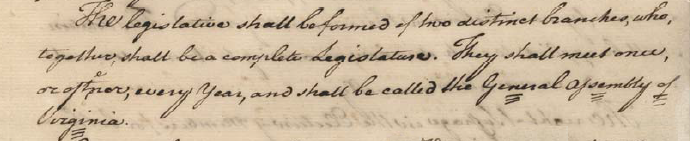 The legislative shall be formed of two distinct branches, who,
together, shall be a complete Legislature. They shall meet once,
or oftner, every Year, and shall be called the General Assembly of
Virginia.